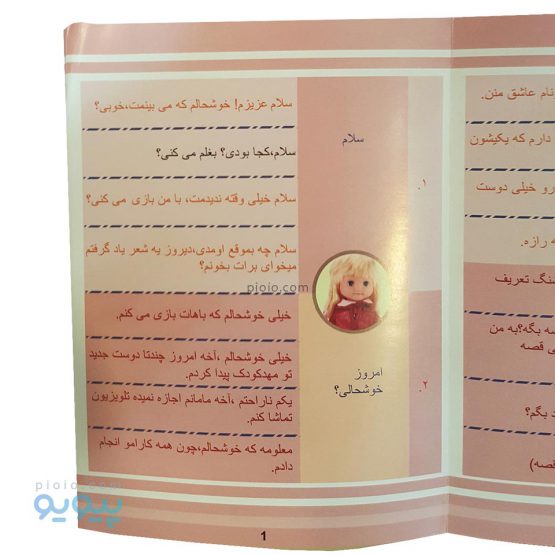 نام عاشق منن.
دارم که یکیشون
رو خیلی دوست
ه رازه.
سنگ تعریف
سه بگه؟به من
ی قصه
د بگم؟
قصه)
۱.
سلام
سلام عزیزم! خوشحالم که می بینمت،خوبی؟
سلام،کجا بودی؟ بغلم می کنی؟
سلام خیلی وقته ندیدمت، با من بازی می کنی؟
سلام چه بموقع اومدی،دیروز یه شعر یاد گرفتم
میخوای برات بخونم؟
۲.
امروز
خوشحالی؟
خیلی خوشحالم که باهات بازی می کنم.
خیلی خوشحالم ،آخه امروز چندتا دوست جدید
تو مهدکودک پیدا کردم.
یکم ناراحتم ،آخه مامانم اجازه نمیده تلویزیون
تماشا کنم.
معلومه که خوشحالم،چون همه کارامو انجام
دادم.
pioio.com
pioio.com
پیویو
1